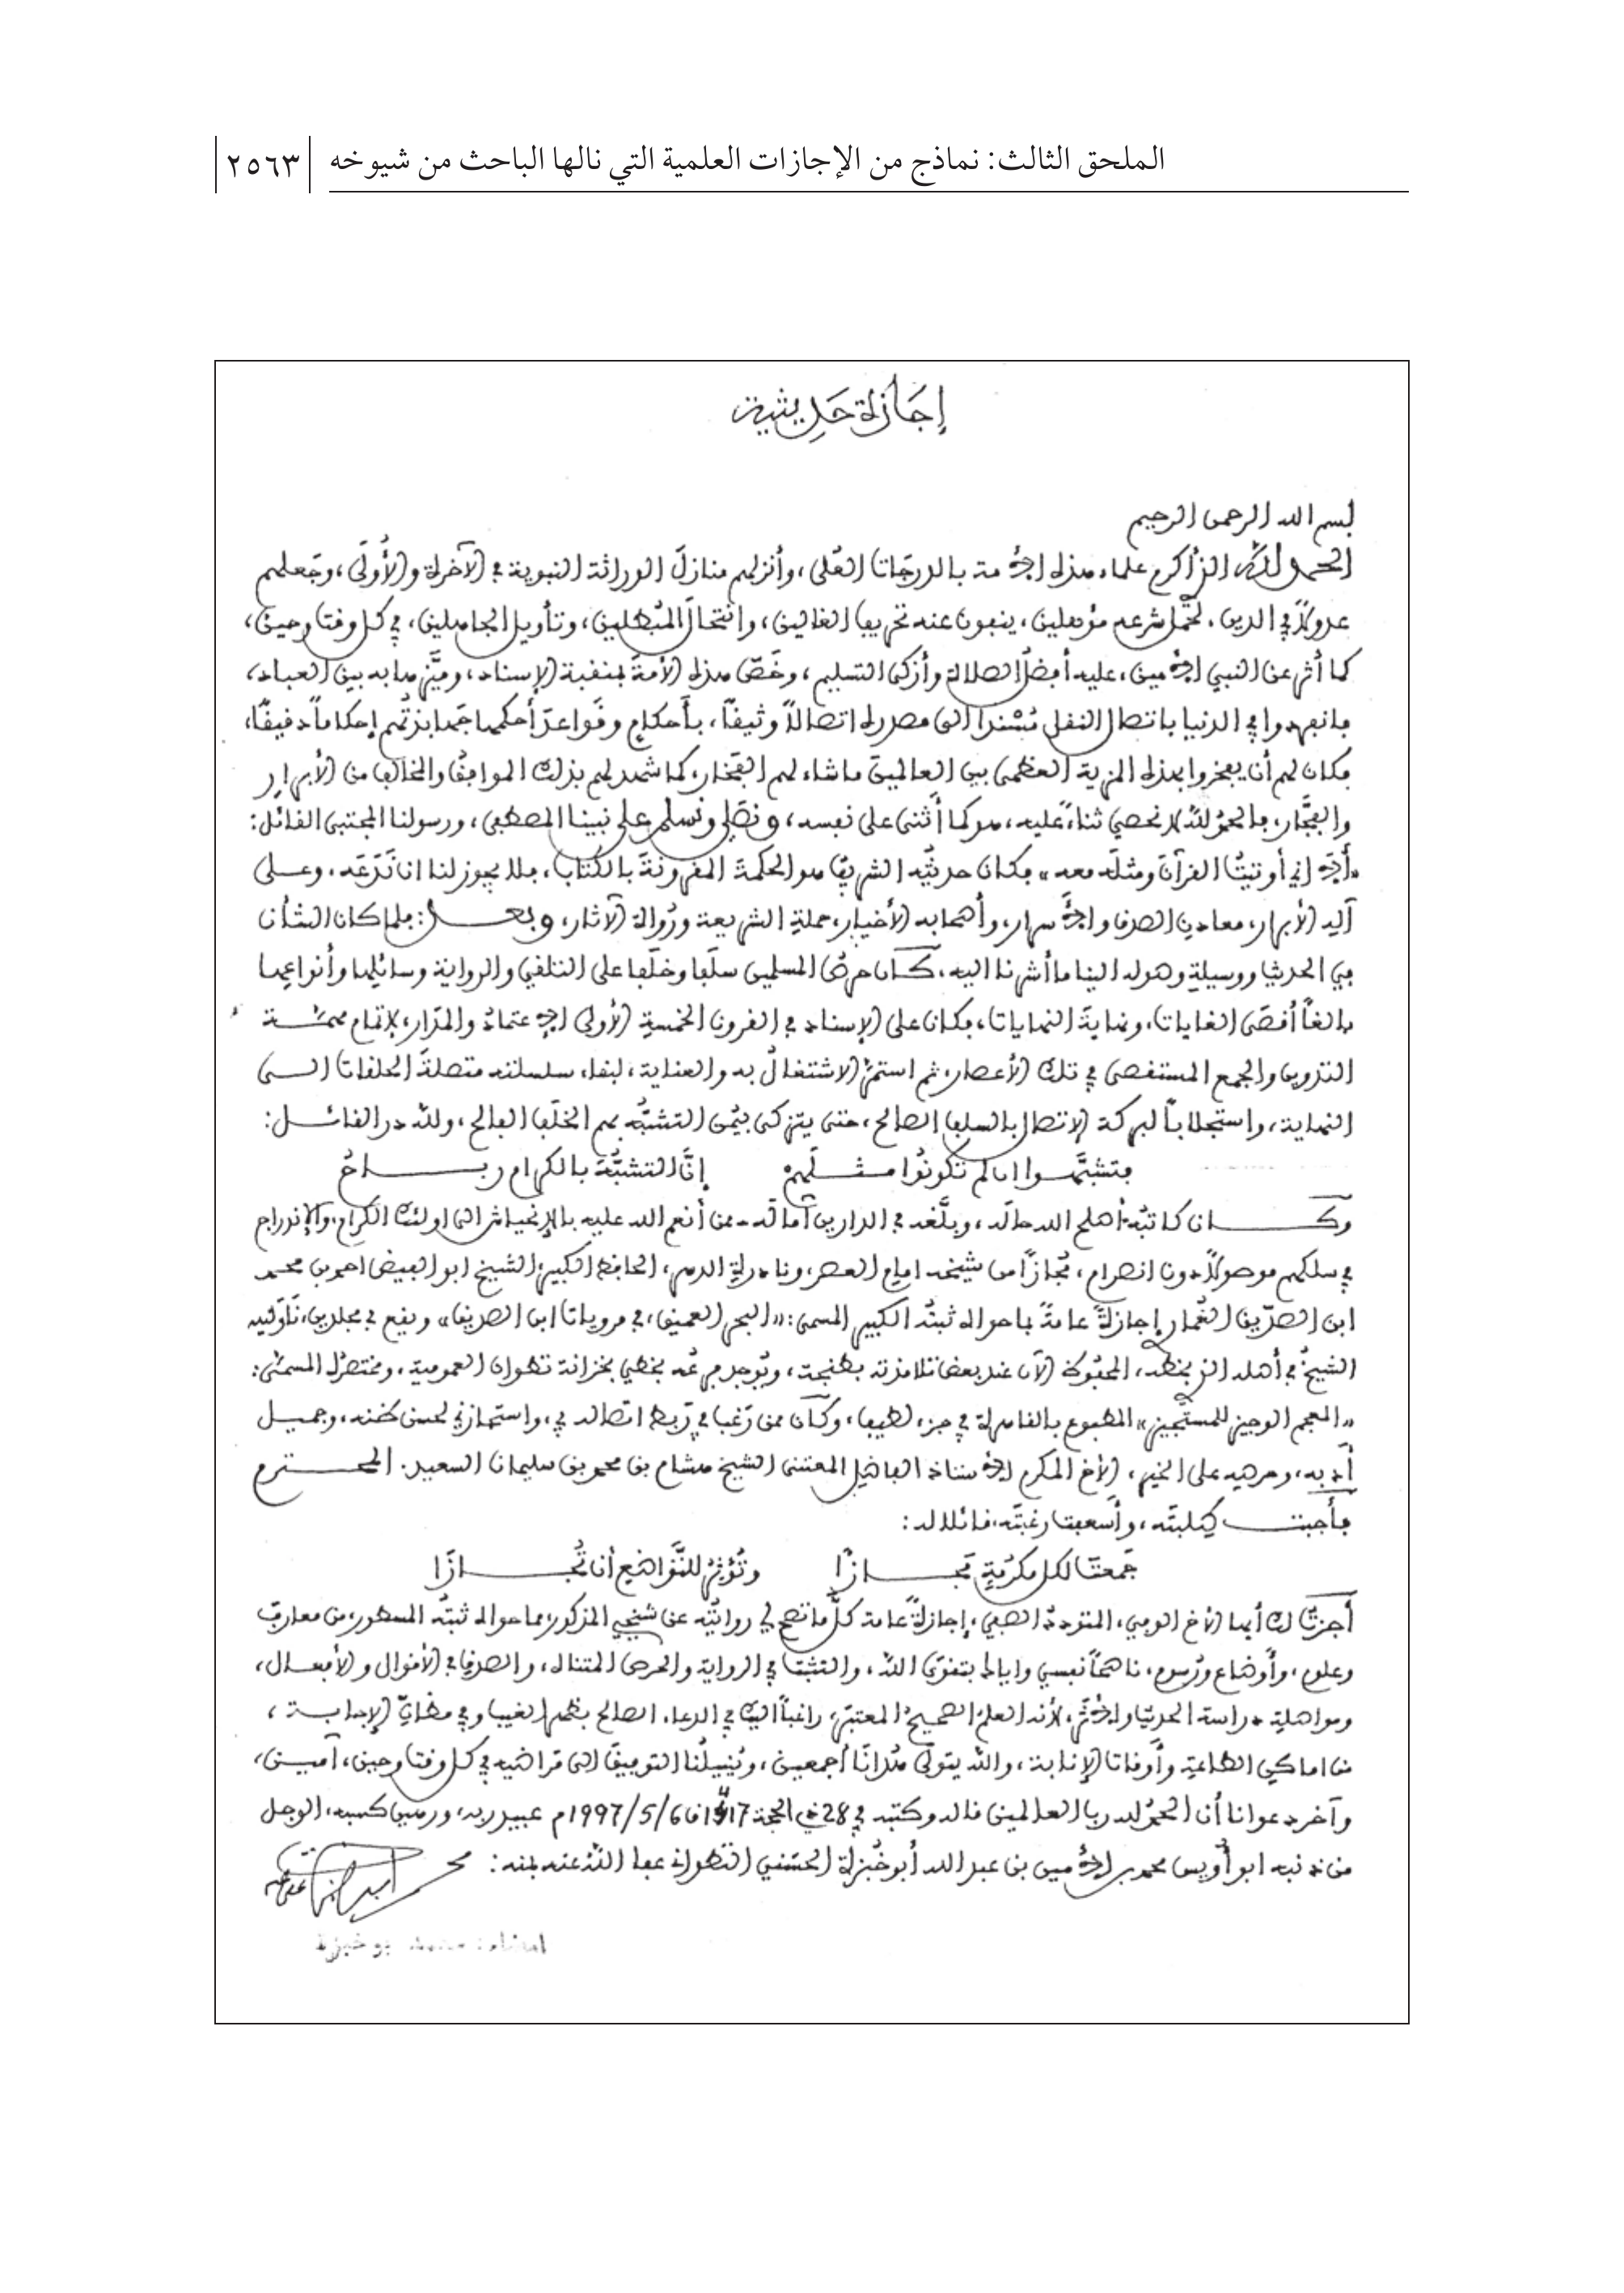 الملحق الثالث: نماذج من الإجازات العلمية التي نالها الباحث من شيوخه
٢٥٦٣
إجازة حديثية
بسم الله الرحمن الرحيم
الحمد لله الذي أكرم علماء هذه الأمة بالدرجات العُلى، وأنزلهم منازلَ الوراثة النبوية في الآخرة والأُولَى، وجَعلهم
عدولاً في الدين، لتحمُّل شرعه مؤهلين، ينفون عنه تحريف الغالين، وانتحالَ المُبطلين، وتأويل الجاهلين، في كل وقت وحين،
كما أثر عن النبي الأمين، عليه أفضل الصلاة وأزكى التسليم، وخَصّ هذه الأمةَ بمنقبة الإسناد، وميَّزها به بين العباد،
فانفردوا في الدنيا باتصال النقل مُسْندا إلى مصدره اتصالاً وثيقاً، بأحكامٍ وقواعدَ أحكمها جهابذتُهم إحكاماً دقيقًا،
فكان لهم أن يفخروا بهذه المزية العظمى بين العالمين ما شاء لهم الفَخار، كما شهد لهم بذلك الموافقُ والمخالف من الأبرار
والفجَّار، فالحمدُ للهِ لا نحصي ثناءً عليه، هو كما أَثنى على نفسه، ونصَلي ونسلم على نبينا المصطفى، ورسولنا المجتبى القائل:
«أَلا إني أوتيتُ القرآنَ ومثلَه معه» فكان حديثُه الشريف هو الحكمةَ المقرونةَ بالكتاب، فلا يجوز لنا أن نَدَعَه، وعلى
آله الأبرار، معادن الصدق والأسرار، وأصحابه الأخيار، حملةِ الشريعة ورُواة الآثار، وبعد: فلما كان الشأن
في الحديث ووسيلةِ وصوله إلينا ما أشرنا إليه، كان حرصُ المسلمين سلَفا وخلَفا على التلقي والرواية وسائلها وأنواعها
بالغاً أقصَى الغايات، ونهايةَ النهايات، فكان على الإسناد في القرون الخمسة الأولى الاعتمادُ والمدار، لإتمام مهمة
التدوين والجمع المستقصى في تلك الأعصار، ثم استمرَّ الاشتغالُ به والعناية، لبقاء سلسلته متصلةَ الحلقات إلى
النهاية، واستجلاباً لبركة الاتصال بالسلف الصالح، حتى يتزكى بيُمن التشبُّه بهم الخلَف الفالح، ولله در القائل:
فتشبَّهوا إن لم تكونُوا مثلَهم إنَّ التشبُّهَ بالكرام رباحُ
وكان كاتبُه أصلح الله حالَه، وبلَّغه في الدارين آمالَه ـ ممن أنعم الله عليه بالانحياش إلى أولئك الكرام، والاندراج
في سلكهم موصولاً دون انصرام، مُجازاً من شيخه إمام العصر، ونادرة الدهر، الحافظ الكبير، الشيخ أبو الفيض أحمد بن محمد
ابن الصدّيق الغُمار إجازةً عامةً بما حواه ثبتُه الكبير المسمى: «البحر العميق، في مرويات ابن الصديق» ويقع في مجلدين، نَاوَلَنيه
الشيخُ في أصله الذي بخطه، المحفوظ الآن عند بعض تلامذته بطنجة، وتُوجد فرعُه بخطي بخزانة تطوان العمومية، ومختصرُه المسمَّى:
«المعجم الوجيز للمستَجيز» المطبوع بالقاهرة في جزء لطيف، وكان ممن رَغب في رَبط اتصاله بي، واستجازني لحسن ظنه، وجميل
أدبه، وحرصه على الخير، الأخ المكرم الأستاذ الفاضل المعتنى الشيخ هشام بن محمد بن سليمان السعيد. المحترم
فأجبت طِلبتَه، وأسعفت رغبتَه، قائلا له:
جَمعتَ لكل مكرُمةٍ مَجازًا وتُؤثِرُ للتَّواضُع أن تُجازَا
أجزتُ لك أيها الأخ الوفي، المتوددُ الصفي، إجازةً عامة كلَّ ما تصح لي روايتُه عن شيخي المذكور، مما حواه ثبتُه المسطور، من معارفَ
وعلوم، وأوضاع ورُسوم، ناصحاً نفسي وإياك بتقوى الله، والتثبت في الرواية والحرص المتناه، والصدق في الأقوال والأفعال،
ومواصلةِ دراسة الحديث والأثَر، لأنه العلمُ الصحيحُ المعتبَر، راغباً إليك في الدعاء الصالح بظهر الغيب وفي مظانِّ الإجابة،
من أماكن الطاعةِ وأوقات الإنابة، والله يتولَّى هُدانَا أجمعين، ويُنيلُنا التوفيقَ إلى مَراضيه في كل وقت وحين، آمين،
وآخر دعوانا أن الحمدُ لله رب العالمين قاله وكتبه في 28 ذي الحجة 1417 ق 1997/5/6م عبيد ربه، ورهين كسبه، الوجل
من ذنبه أبو أُويس محمد بن الأمين بن عبد الله أبو خُبزة الحسَني التطواني عفا اللهُ عنه بمنه:
إمضاء: محمد بوخبزة